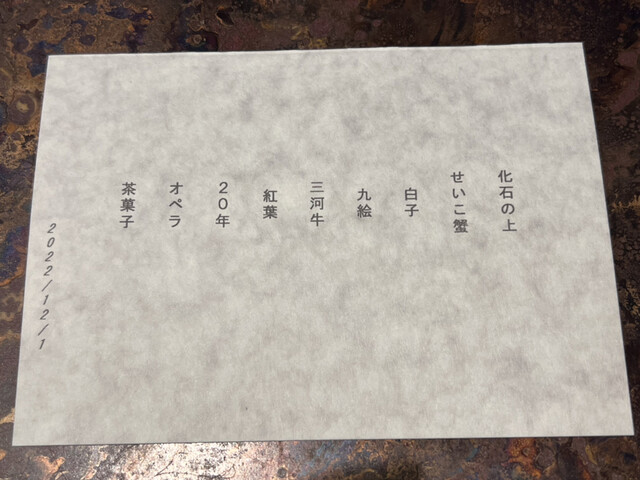 化石の上
せいこ蟹
白子
九絵
三河牛
紅葉
20年
オペラ
茶菓子
2022/12/1